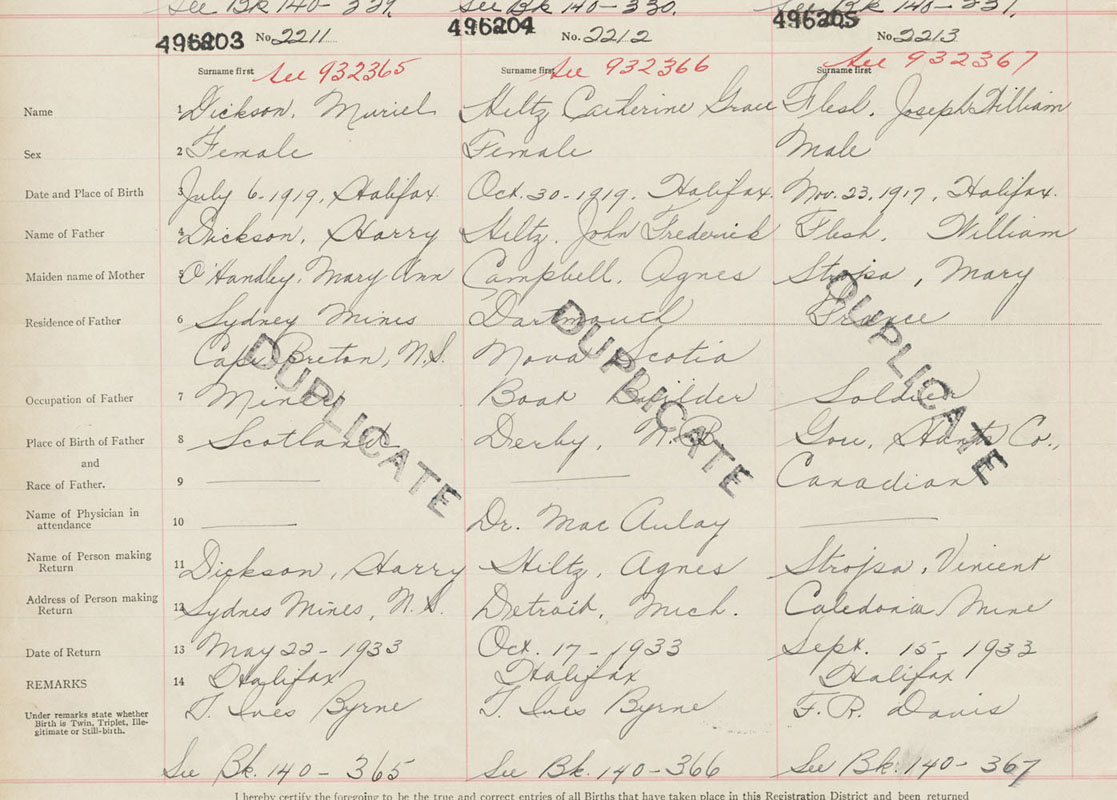 See Bk 140-329. See Bk 140-330. See Bk 140-331.
496203 No. 2211 496204 No. 2212 496205 No. 2213
Surname first See 932365 Surname first See 932366 Surname first See 932367
Name 1 Dickson, Muriel Hiltz, Catherine Grace Flesh, Joseph William
Sex 2 Female Female Male
Date and Place of Birth 3 July 6, 1919, Halifax. Oct. 30-1919, Halifax. Nov. 23, 1917, Halifax.
Name of Father 4 Dickson, Harry Hiltz, John Frederick Flesh, William
Maiden name of Mother 5 O'Handley, Mary Ann Campbell, Agnes Strojsa, Mary
Residence of Father 6 Sydney Mines Dartmouth France
Cape Breton, N.S. Nova Scotia
Occupation of Father 7 Miner Boat Builder Soldier
Place of Birth of Father 8 Scotland Derby, N.B. Gou, Hants Co.,
and
Race of Father. 9 Canadian
Name of Physician in
attendance 10 Dr. MacAulay
Name of Person making
Return 11 Dickson, Harry Hiltz, Agnes Strojsa, Vincent
Address of Person making
Return 12 Sydney Mines, N.S. Detroit, Mich. Caledonia Mine
Date of Return 13 May 22-1933 Oct. 17-1933 Sept. 15-1933
REMARKS 14 Halifax Halifax Halifax
Under remarks state whether
Birth is Twin, Triplet, Ille-
gitimate or Still-birth.
T. Ives Byrne T. Ives Byrne F. R. Davis
See Bk. 140-365 See Bk. 140-366 See Bk. 140-367
DUPLICATE DUPLICATE DUPLICATE
I hereby certify the foregoing to be the true and correct entries of all Births that have taken place in this Registration District and been returned